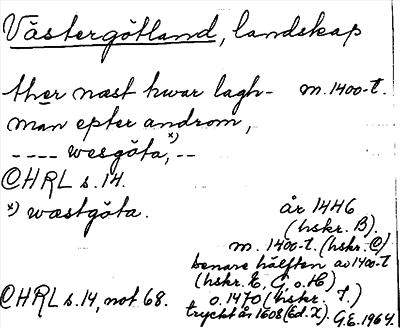 Västergötland, landskap
ther næst hwar lagh- m. 1400-t.
man epter androm,
---- wesgöta,x) --
CHRL s. 14.
x) wæstgöta. år 1446
(hskr. B).
m. 1400-t. (hskr. C)
senare hälften av 1400-t
(hskr. E, G, o. H)
o. 1470 (hskr. I.)
CHRL s. 14, not 68. tryckt år 1608 (Ed. X). G.E. 1964.